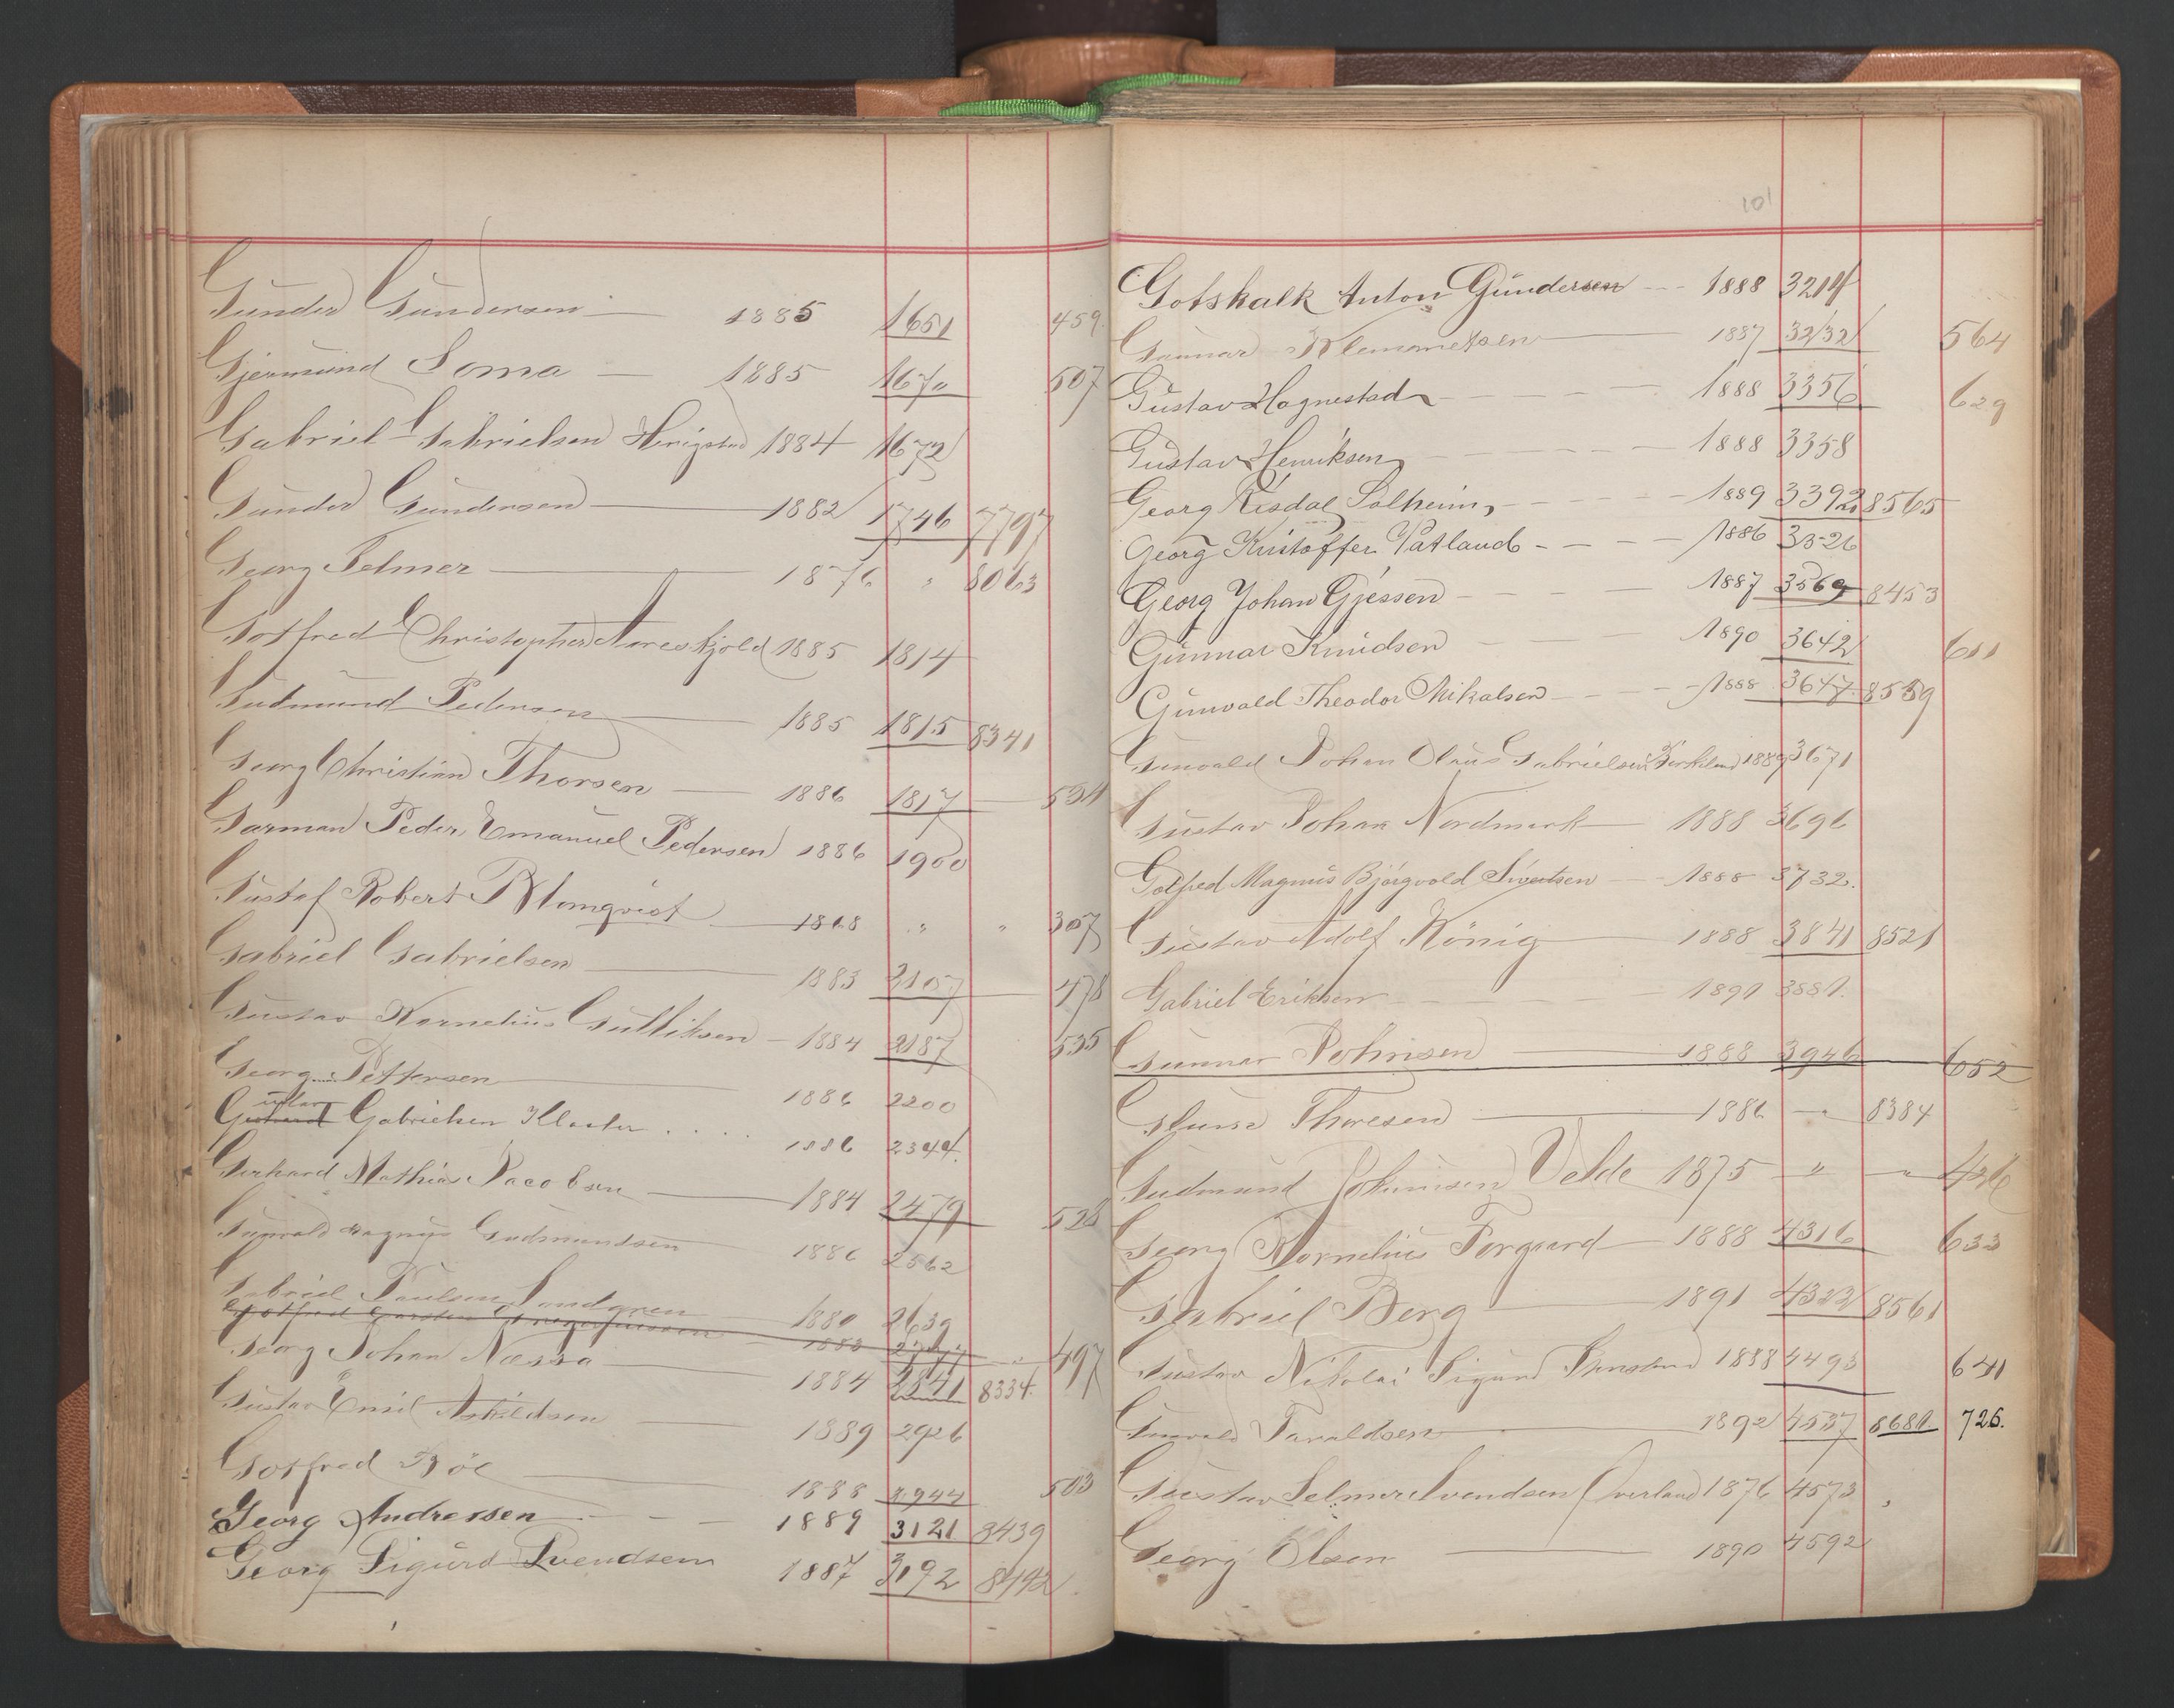 Gunder Gundersen — 1885 1651 459
Gjermund Soma — 1885 1670 507
Gabriel Gabrielsen Herigstad 1884 1672
Gunder Gundersen — 1882 1746 7797
Georg Selmer — 1876 " 8063
Gotfred Christopher Aareskjold 1885 1814
Gudmund Pedersen — 1885 1815 8341
Georg Christian Thorsen — 1886 1817 — 534
Garman Peder Emanuel Pedersen 1886 1900
Gustaf Robert Blomqvist — 1868 " " 307
Gabriel Gabrielsen — 1883 2107 — 478
Gustav Kornelius Gulliksen — 1884 2187 535
Georg Pettersen — 1886 2200
Gustav Gabrielsen Kloster . . . . 1886 2344.
Gerhard Mathias Jacobsen — 1884 2479 528
Gunvald Magnus Gudmundsen 1886 2562
Gabriel Paulsen Landgren 1880 2639
Gotfred 1883 " 497
Georg Johan Næssa — 1884 2841 8334.
Gustav Emil Askildsen — 1889 2926
Gotfred Bøe — 1888 2944 503
Georg Andressen - - - 1889 3121 8439
Georg Sigurd Svendsen 1887 3192 8442
101
Gotskalk Anton Gundersen - - - 1888 3214
Gunnar Klemmetsen — 1887 3232 564
Gustav Hognestad - - - - 1888 3356 629
Gustav Henriksen - - - - 1888 3358
Georg Risdal Solheim, - - - - 1889 3392 8565
Georg Kristoffer Vatland - - - - 1886 3526
Georg Johan Gjessen - - - - 1887 3569 8453
Gunnar Knudsen - - - 1890 3642 611
Gunvald Theodor Mikalsen - - - - 1888 3647 8559
Gunvald Johan Olaus Gabrielsen Birkeland 1889 3671
Gustav Johan Nordmark — 1888 3696
Gotfred Magnus Bjørgvald Sivertsen — 1888 3732.
Gustav Adolf König — 1888 3841 8521
Gabriel Eriksen - - - 1891 3881.
Gunnar Johnsen — 1888 3946 — 652
Thoresen — 1886 — " 8384
Gudmund Johannesen Velde 1875 — " — " 426
Georg Kornelius Forgaard — 1888 4316 633
Gabriel Berg — 1891 4322 8561
Gustav Nikolai Sigurd 1888 4493 641
Gunvald Taraldsen — 1892 4537 8681. 726.
Gustav Selmer Svendsen Overland 1876 4573 "
Georg Olsen — 1890 4592